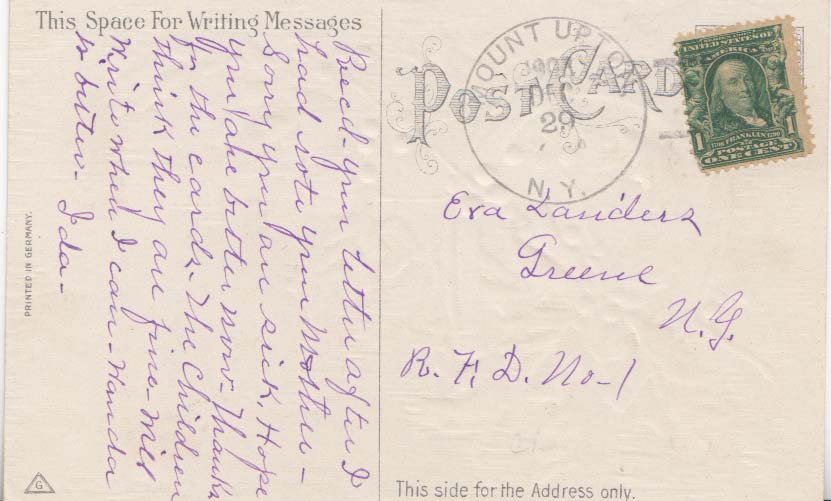 This Space For Writing Messages
Recd- your letter after I
had rote your Mother -
Sory you are sick, Hope
you are better now- Thanks
for the cards- The Children
think they are fine- Will
Write when I can- Wanda
is better- Ida-
PRINTED IN GERMANY.
G
POST CARD
MOUNT UPTON
DEC
29
N.Y.
SERIES 1902
UNITED STATES OF
AMERICA
1706 FRANKLIN 1790
1 POSTAGE 1
ONE CENT
Eva Landers
Greene
N.Y.
R. F. D. No-1
This side for the Address only.